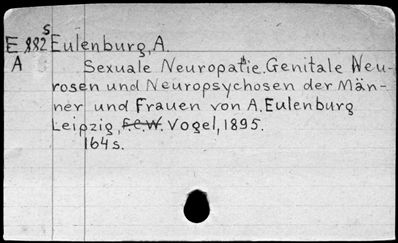 E 882 S Eulenburg, A.
A Sexuale Neuropatie. Genitale Neu-
rosen und Neuropsychosen der Män-
ner und Frauen von A. Eulenburg
Leipzig, F.C.W. Vogel, 1895.
164 s.